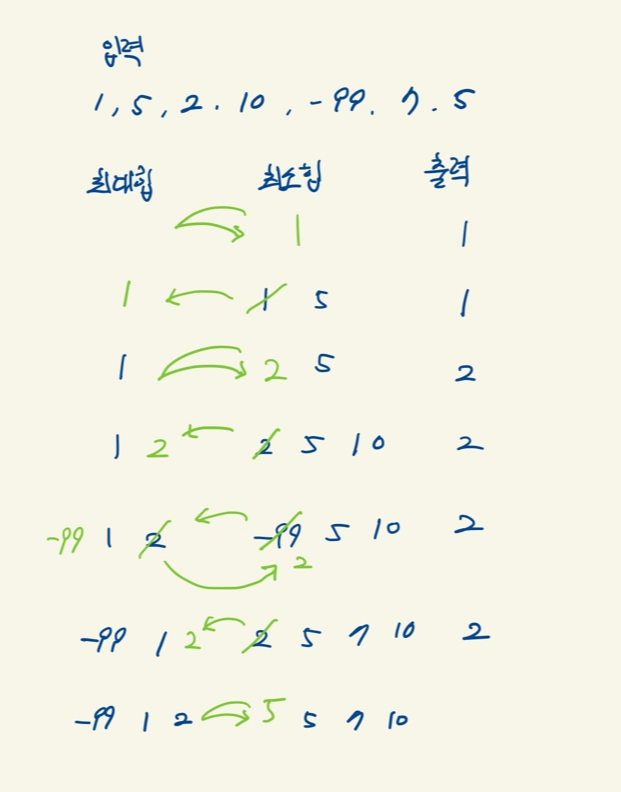 입력
1, 5, 2. 10, -99. 7. 5
최대힙 최소힙 출력
1 1
1 1 5 1
1 2 5 2
1 2 2 5 10 2
-99 1 2 -99 5 10 2
2
-99 1 2 2 5 7 10 2
-99 1 2 5 5 7 10